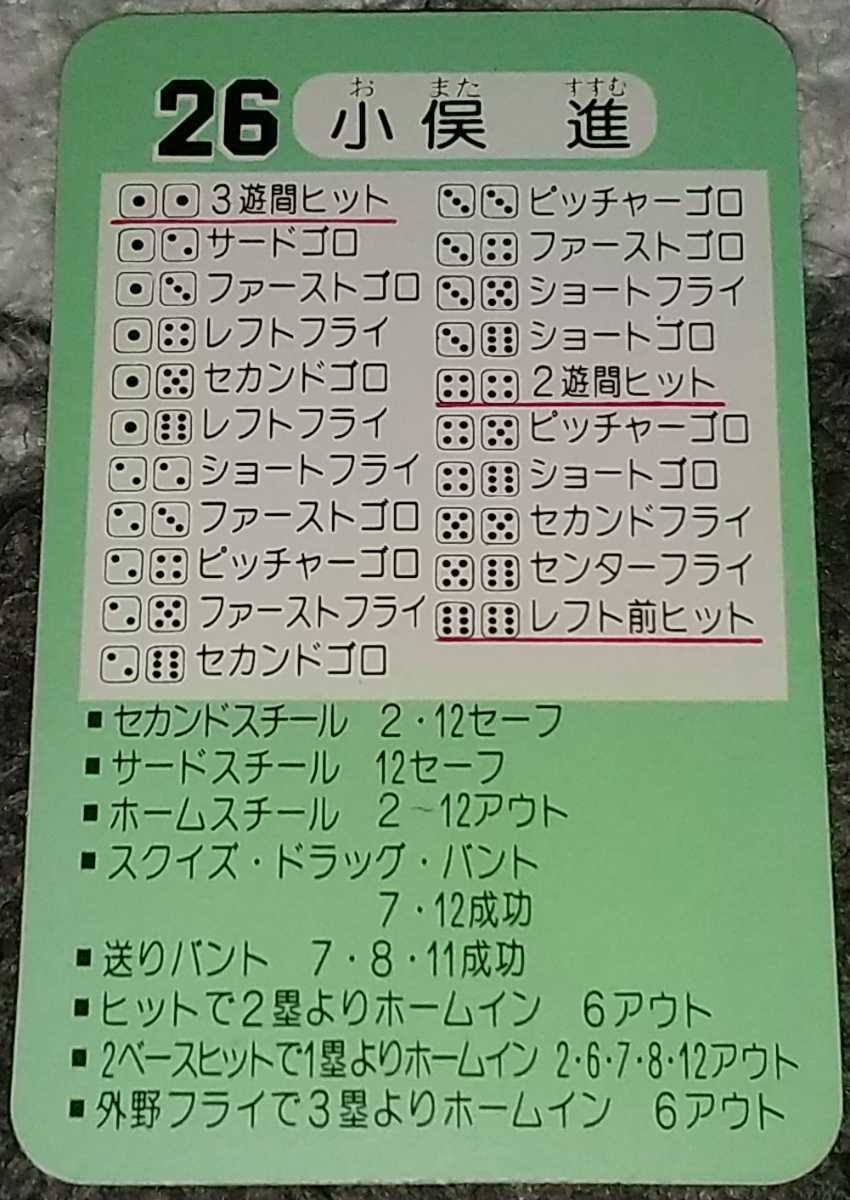 26 小俣 進
お また すすむ
⚀⚀3遊間ヒット
⚀⚁サードゴロ
⚀⚂ファーストゴロ
⚀⚃レフトフライ
⚀⚄セカンドゴロ
⚀⚅レフトフライ
⚁⚁ショートフライ
⚁⚂ファーストゴロ
⚁⚃ピッチャーゴロ
⚁⚄ファーストフライ
⚁⚅セカンドゴロ
⚂⚂ピッチャーゴロ
⚂⚃ファーストゴロ
⚂⚄ショートフライ
⚂⚅ショートゴロ
⚃⚃2遊間ヒット
⚃⚄ピッチャーゴロ
⚃⚅ショートゴロ
⚄⚄セカンドフライ
⚄⚅センターフライ
⚅⚅レフト前ヒット
■セカンドスチール 2・12セーフ
■サードスチール 12セーフ
■ホームスチール 2~12アウト
■スクイズ・ドラッグ・バント
7・12成功
■送りバント 7・8・11成功
■ヒットで2塁よりホームイン 6アウト
■2ベースヒットで1塁よりホームイン 2・6・7・8・12アウト
■外野フライで3塁よりホームイン 6アウト